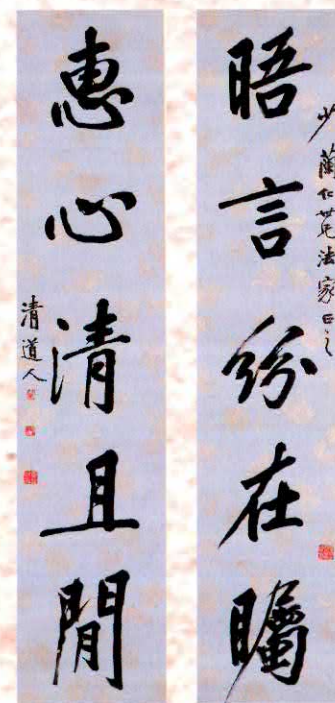 晤言纷在矚
少蘭仁兄法家正之
惠心清且閒
清道人